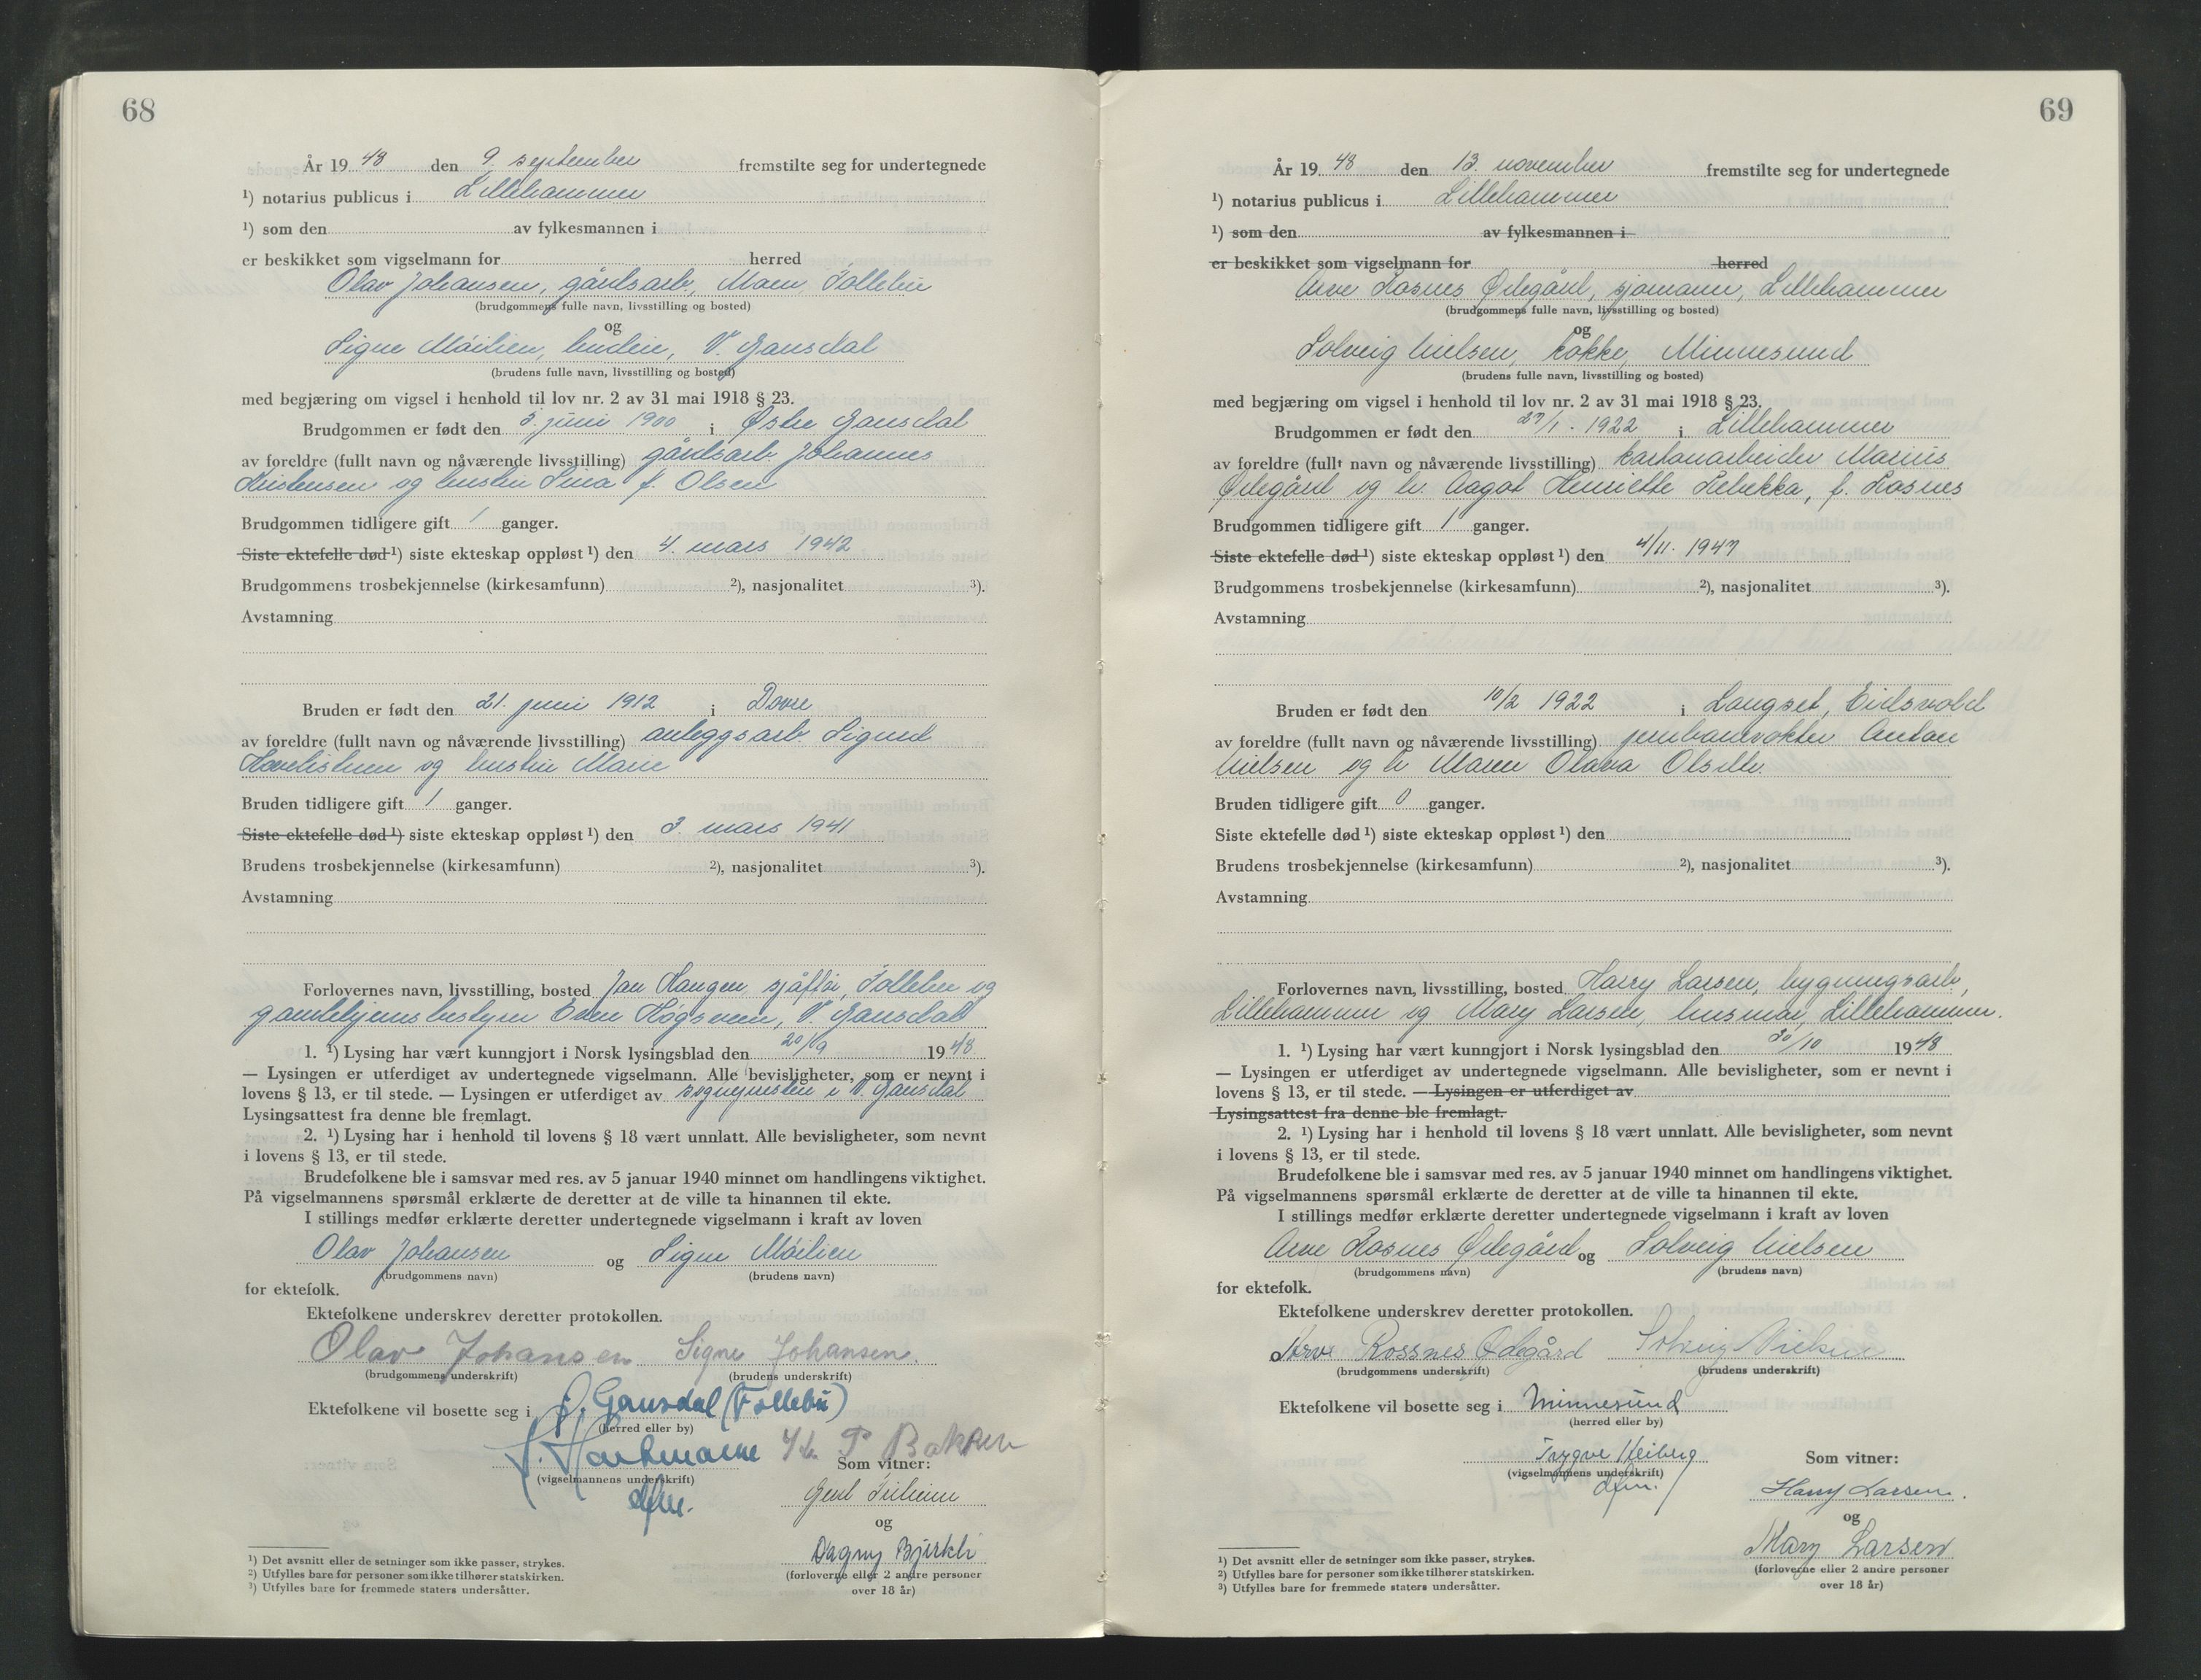 68
År 19 48 den 9. september fremstilte seg for undertegnede
¹) notarius publicus i Lillehammer
¹) som den av fylkesmannen i
er beskikket som vigselmann for herred
Olav Johansen, gårdsarb., Moen, Follebu
(brudgommens fulle navn, livsstilling og bosted)
og
Signe Moilien, budeie, V. Gausdal
(brudens fulle navn, livsstilling og bosted)
med begjæring om vigsel i henhold til lov nr. 2 av 31 mai 1918 § 23.
Brudgommen er født den 5. juni 1900 i Østre Gausdal
av foreldre (fullt navn og nåværende livsstilling) gårdsarb. Johannes
Kristensen og hustru Lina f. Olsen
Brudgommen tidligere gift 1 ganger.
Siste ektefelle død ¹) siste ekteskap oppløst ¹) den 4. mars 1942
Brudgommens trosbekjennelse (kirkesamfunn) ²), nasjonalitet ³).
Avstamning
Bruden er født den 21. juni 1912 i Dovre
av foreldre (fullt navn og nåværende livsstilling) anleggsarb. Sigurd
og hustru Marie
Bruden tidligere gift 1 ganger.
Siste ektefelle død ¹) siste ekteskap oppløst ¹) den 3. mars 1941
Brudens trosbekjennelse (kirkesamfunn) ²), nasjonalitet ³).
Avstamning
Forlovernes navn, livsstilling, bosted Jan Haugen, sjåfør, Follebu og
gamlehjemsbestyrer Even Høgsveen, V. Gausdal
1. ¹) Lysing har vært kunngjort i Norsk lysingsblad den 20/ 9 19 48
— Lysingen er utferdiget av undertegnede vigselmann. Alle bevisligheter, som er nevnt i
lovens § 13, er til stede. — Lysingen er utferdiget av sognepresten i V. Gausdal
Lysingsattest fra denne ble fremlagt.
2. ¹) Lysing har i henhold til lovens § 18 vært unnlatt. Alle bevisligheter, som nevnt
i lovens § 13, er til stede.
Brudefolkene ble i samsvar med res. av 5 januar 1940 minnet om handlingens viktighet.
På vigselmannens spørsmål erklærte de deretter at de ville ta hinannen til ekte.
I stillings medfør erklærte deretter undertegnede vigselmann i kraft av loven
Olav Johansen og Signe Moilien
(brudgommens navn) (brudens navn)
for ektefolk.
Ektefolkene underskrev deretter protokollen.
Olav Johansen Signe Johansen.
(brudgommens underskrift) (brudens underskrift)
Ektefolkene vil bosette seg i Ø. Gausdal (Follebu)
(herred eller by)
P Bakken
(vigselmannens underskrift) Som vitner:
dfm.
og
Dagny Bjørkli
(forloverne eller 2 andre personer
over 18 år)
¹) Det avsnitt eller de setninger som ikke passer, strykes.
²) Utfylles bare for personer som ikke tilhører statskirken.
³) Utfylles bare for fremmede staters undersåtter.
69
År 19 48 den 13. november fremstilte seg for undertegnede
¹) notarius publicus i Lillehammer
¹) som den av fylkesmannen i
er beskikket som vigselmann for herred
Arve Rosnes Ødegård, sjømann, Lillehammer
(brudgommens fulle navn, livsstilling og bosted)
og
Solveig Nielsen, kokke, Minnesund
(brudens fulle navn, livsstilling og bosted)
med begjæring om vigsel i henhold til lov nr. 2 av 31 mai 1918 § 23.
Brudgommen er født den 27/1. 1922 i Lillehammer
av foreldre (fullt navn og nåværende livsstilling) kartonarbeider Marius
Ødegård og h. Aagot Henriette Rebekka, f. Rosnes
Brudgommen tidligere gift 1 ganger.
Siste ektefelle død ¹) siste ekteskap oppløst ¹) den 4/11. 1947
Brudgommens trosbekjennelse (kirkesamfunn) ²), nasjonalitet ³).
Avstamning
Bruden er født den 10/2 1922 i Langset, Eidsvold
av foreldre (fullt navn og nåværende livsstilling) jernbanevokter Anton
Nielsen og h. Maren Olava Olsdtr.
Bruden tidligere gift 0 ganger.
Siste ektefelle død ¹) siste ekteskap oppløst ¹) den
Brudens trosbekjennelse (kirkesamfunn) ²), nasjonalitet ³).
Avstamning
Forlovernes navn, livsstilling, bosted Harry Larsen, bygningsarb.,
Lillehammer og Mary Larsen, husmor, Lillehammer.
1. ¹) Lysing har vært kunngjort i Norsk lysingsblad den 30/10 19 48
— Lysingen er utferdiget av undertegnede vigselmann. Alle bevisligheter, som er nevnt i
lovens § 13, er til stede. — Lysingen er utferdiget av
Lysingsattest fra denne ble fremlagt.
2. ¹) Lysing har i henhold til lovens § 18 vært unnlatt. Alle bevisligheter, som nevnt
i lovens § 13, er til stede.
Brudefolkene ble i samsvar med res. av 5 januar 1940 minnet om handlingens viktighet.
På vigselmannens spørsmål erklærte de deretter at de ville ta hinannen til ekte.
I stillings medfør erklærte deretter undertegnede vigselmann i kraft av loven
Arve Rosnes Ødegård og Solveig Nielsen
(brudgommens navn) (brudens navn)
for ektefolk.
Ektefolkene underskrev deretter protokollen.
Arve Rossnes Ødegård Solveig Nielsen
(brudgommens underskrift) (brudens underskrift)
Ektefolkene vil bosette seg i Minnesund
(herred eller by)
Trygve Heiberg
(vigselmannens underskrift) Som vitner:
dfm.
Harry Larsen.
og
Mary Larsen
(forloverne eller 2 andre personer
over 18 år)
¹) Det avsnitt eller de setninger som ikke passer, strykes.
²) Utfylles bare for personer som ikke tilhører statskirken.
³) Utfylles bare for fremmede staters undersåtter.